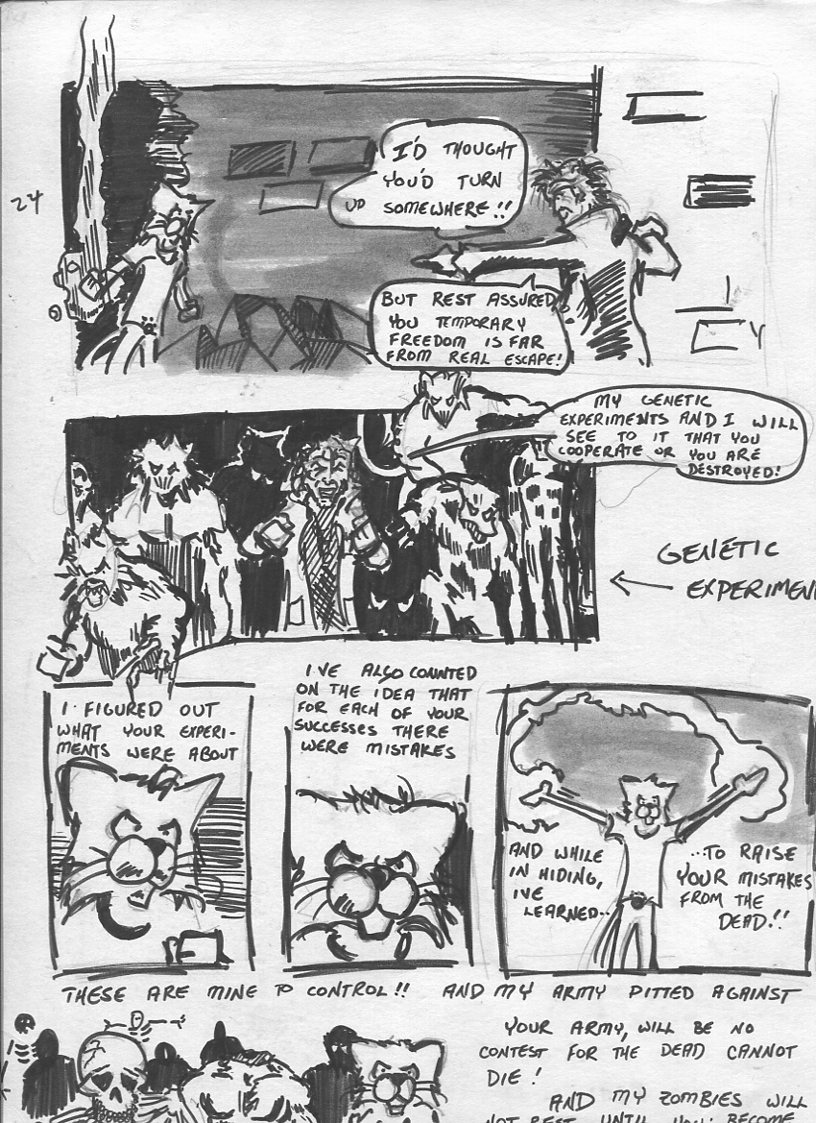 24
I'D THOUGHT
YOU'D TURN
UP SOMEWHERE!!
BUT REST ASSURED
YOU TEMPORARY
FREEDOM IS FAR
FROM REAL ESCAPE!
MY GENETIC
EXPERIMENTS AND I WILL
SEE TO IT THAT YOU
COOPERATE OR YOU ARE
DESTROYED!
GENETIC
← EXPERIMEN
I FIGURED OUT
WHAT YOUR EXPERI-
MENTS WERE ABOUT
I'VE ALSO COUNTED
ON THE IDEA THAT
FOR EACH OF YOUR
SUCCESSES THERE
WERE MISTAKES
AND WHILE
IN HIDING,
I'VE
LEARNED..
...TO RAISE
YOUR MISTAKES
FROM THE
DEAD!!
THESE ARE MINE TO CONTROL!! AND MY ARMY PITTED AGAINST
YOUR ARMY, WILL BE NO
CONTEST FOR THE DEAD CANNOT
DIE!
AND MY ZOMBIES WILL
NOT REST UNTIL YOU BECOME